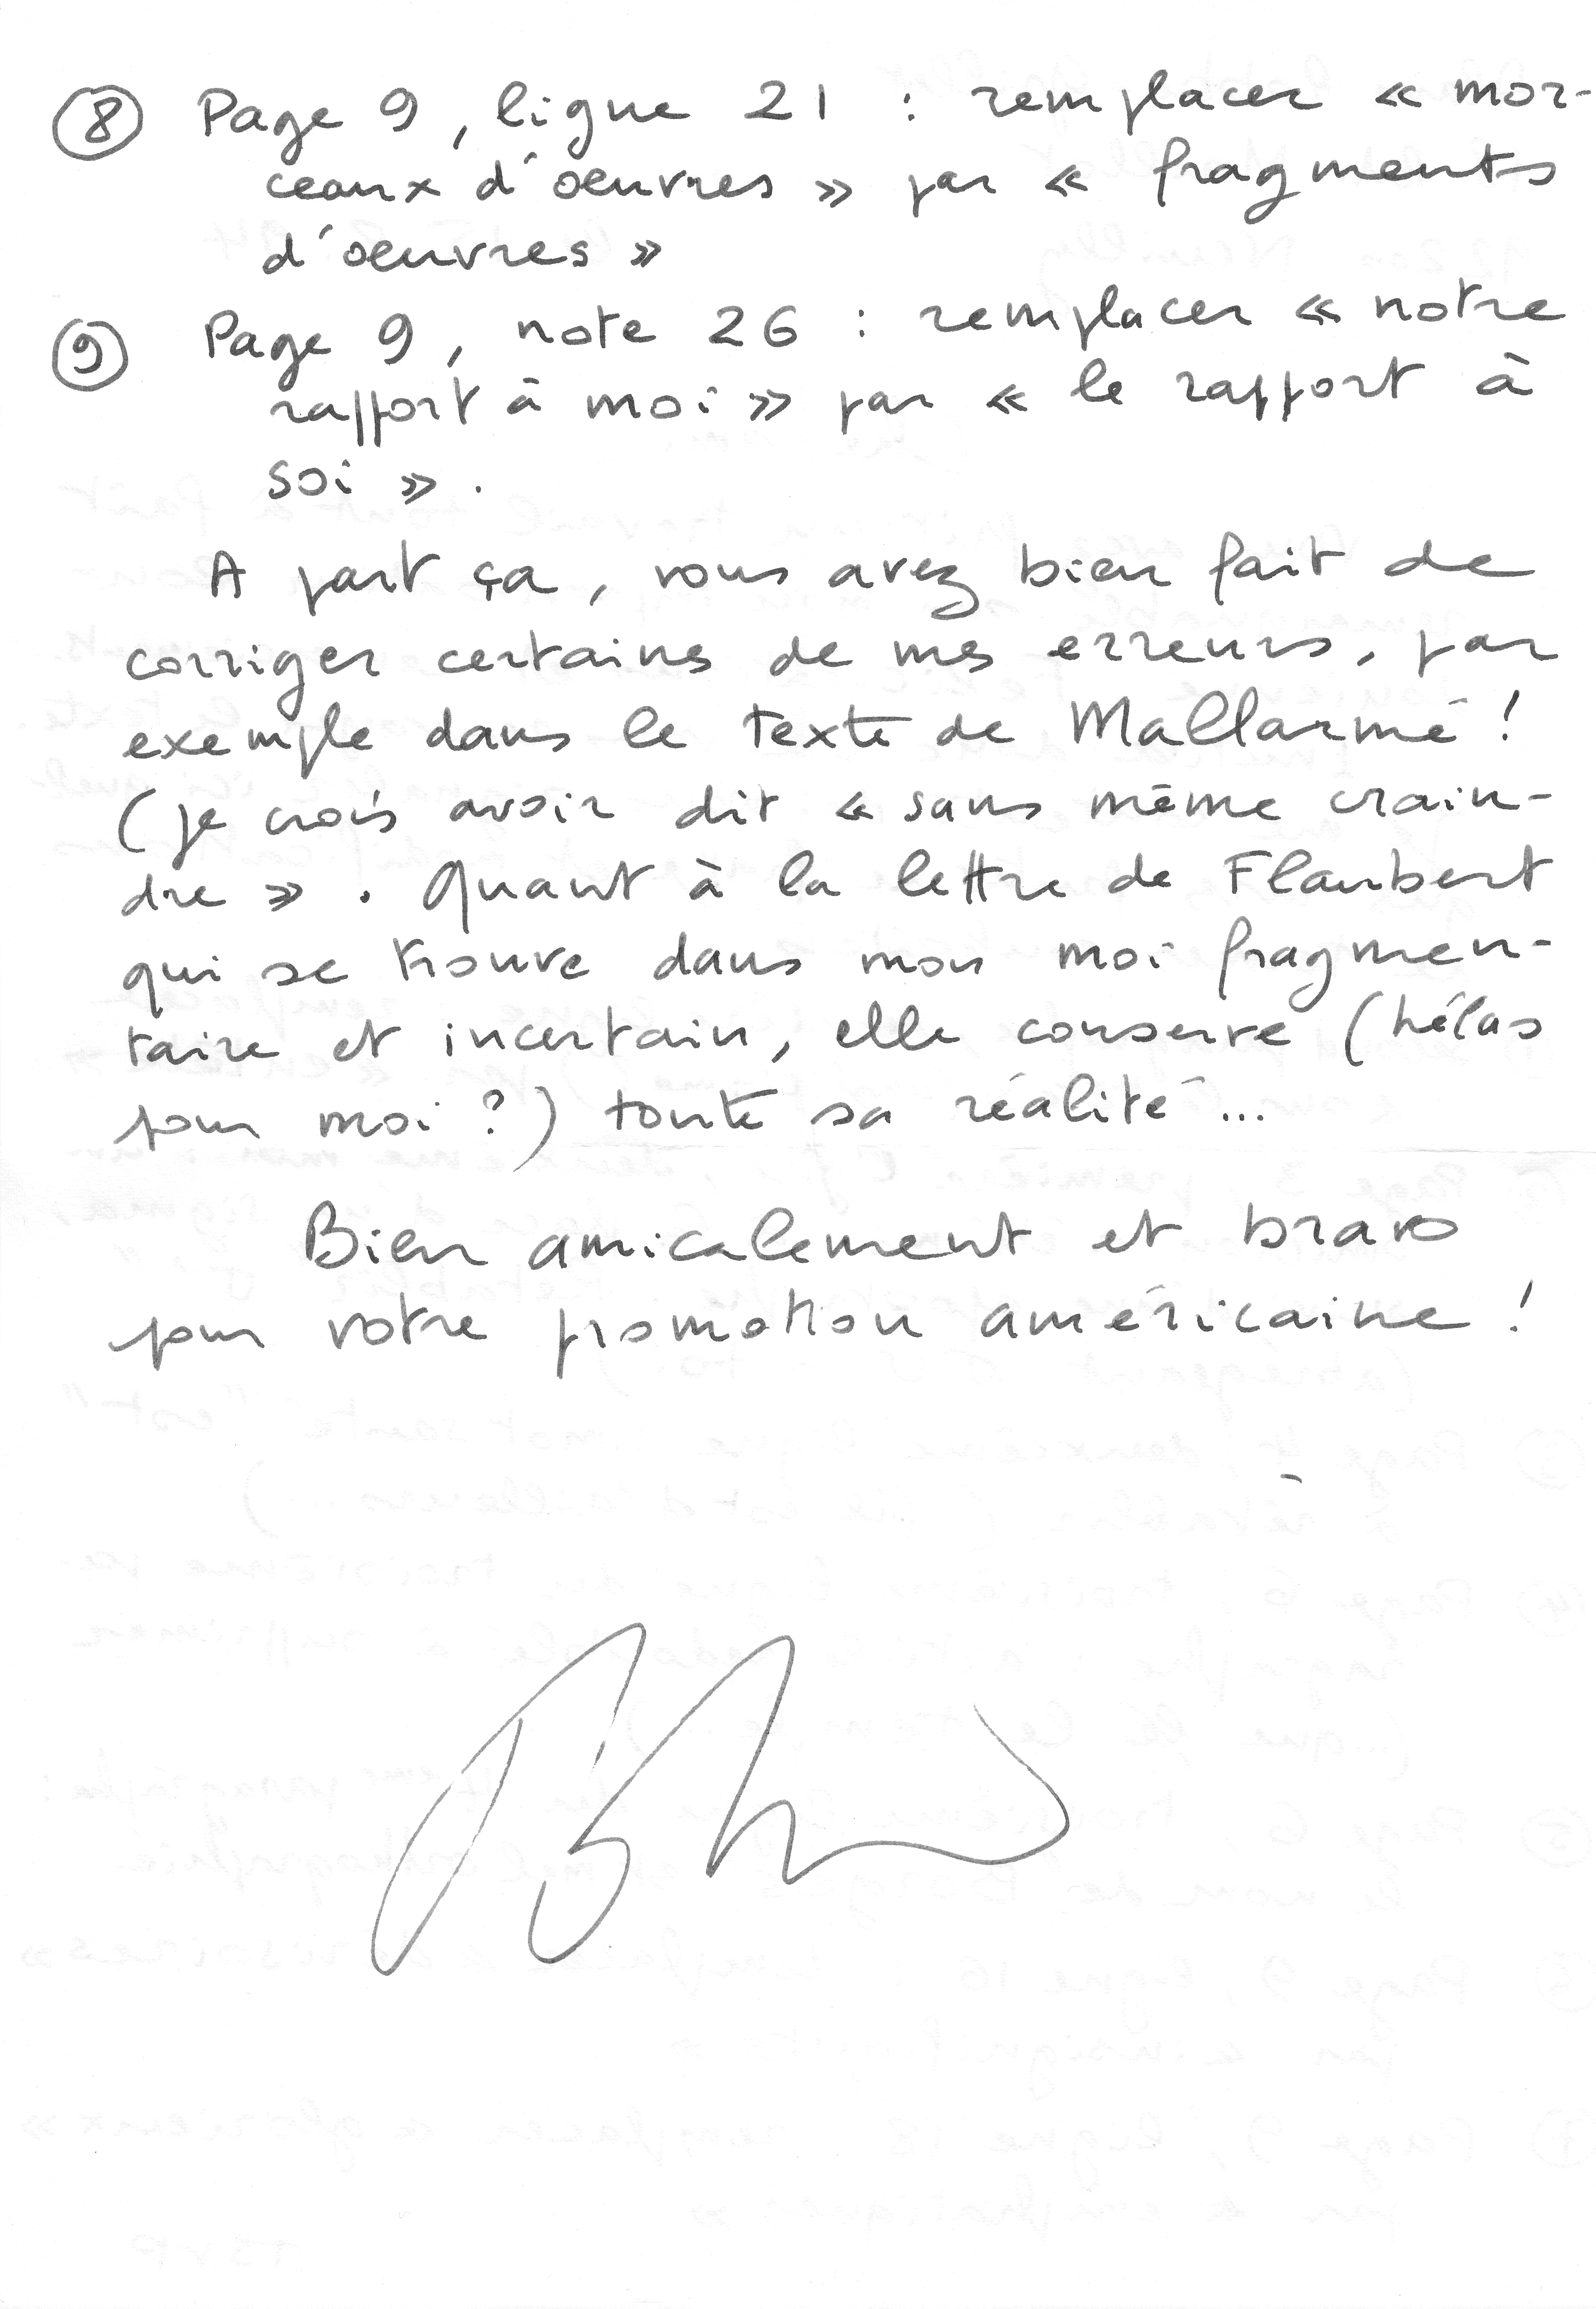 ⑧ Page 9, ligne 21 : remplacer « mor-
ceaux d'oeuvres » par « fragments
d'oeuvres »
⑨ Page 9, note 26 : remplacer « notre
rapport à moi » par « le rapport à
soi ».
A part ça, vous avez bien fait de
corriger certaines de mes erreurs, par
exemple dans le texte de Mallarmé !
(je crois avoir dit « sans même crain-
dre ». Quant à la lettre de Flaubert
qui se trouve dans mon moi fragmen-
taire et incertain, elle conserve (hélas
pour moi ?) toute sa réalité...
Bien amicalement et bravo
pour votre promotion américaine !